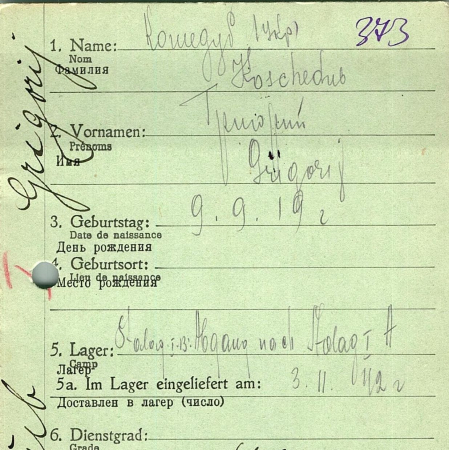 373
1. Name: Кошедуб (укр)
Nom
Фамилия
Koschedub
Григорий
2. Vornamen:
Prénoms
Имя
Grigorij
3. Geburtstag: 9.9.19 г
Date de naissance
День рождения
4. Geburtsort:
Lieu de naissance
Место рождения
Stalag I-B. Abgang nach Stalag I A
5. Lager:
Camp
Лагерь
5a. Im Lager eingeliefert am: 3.11.42 г
Доставлен в лагер (число)
6. Dienstgrad:
Grade
Grigorij